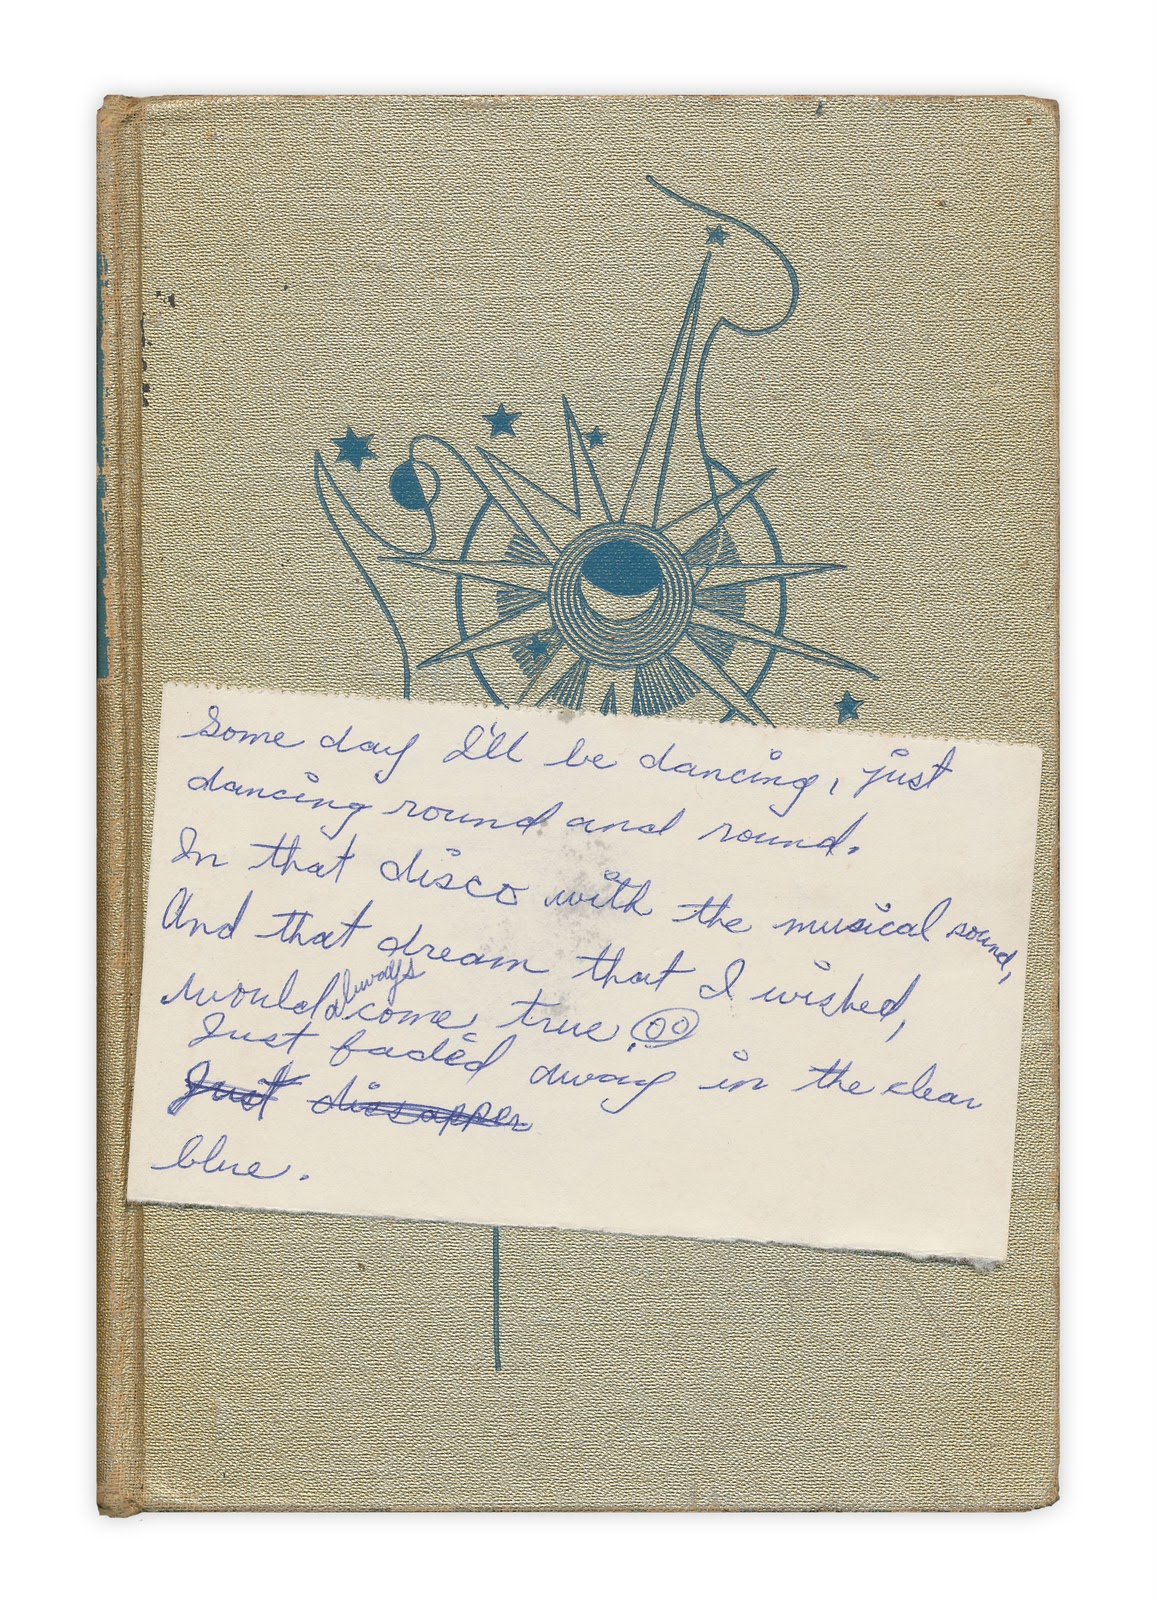 Some day I'll be dancing, just
dancing round and round.
In that disco with the musical sound,
And that dream that I wished,
would always come true.
Just faded away in the clear
Just dissapper
blue.